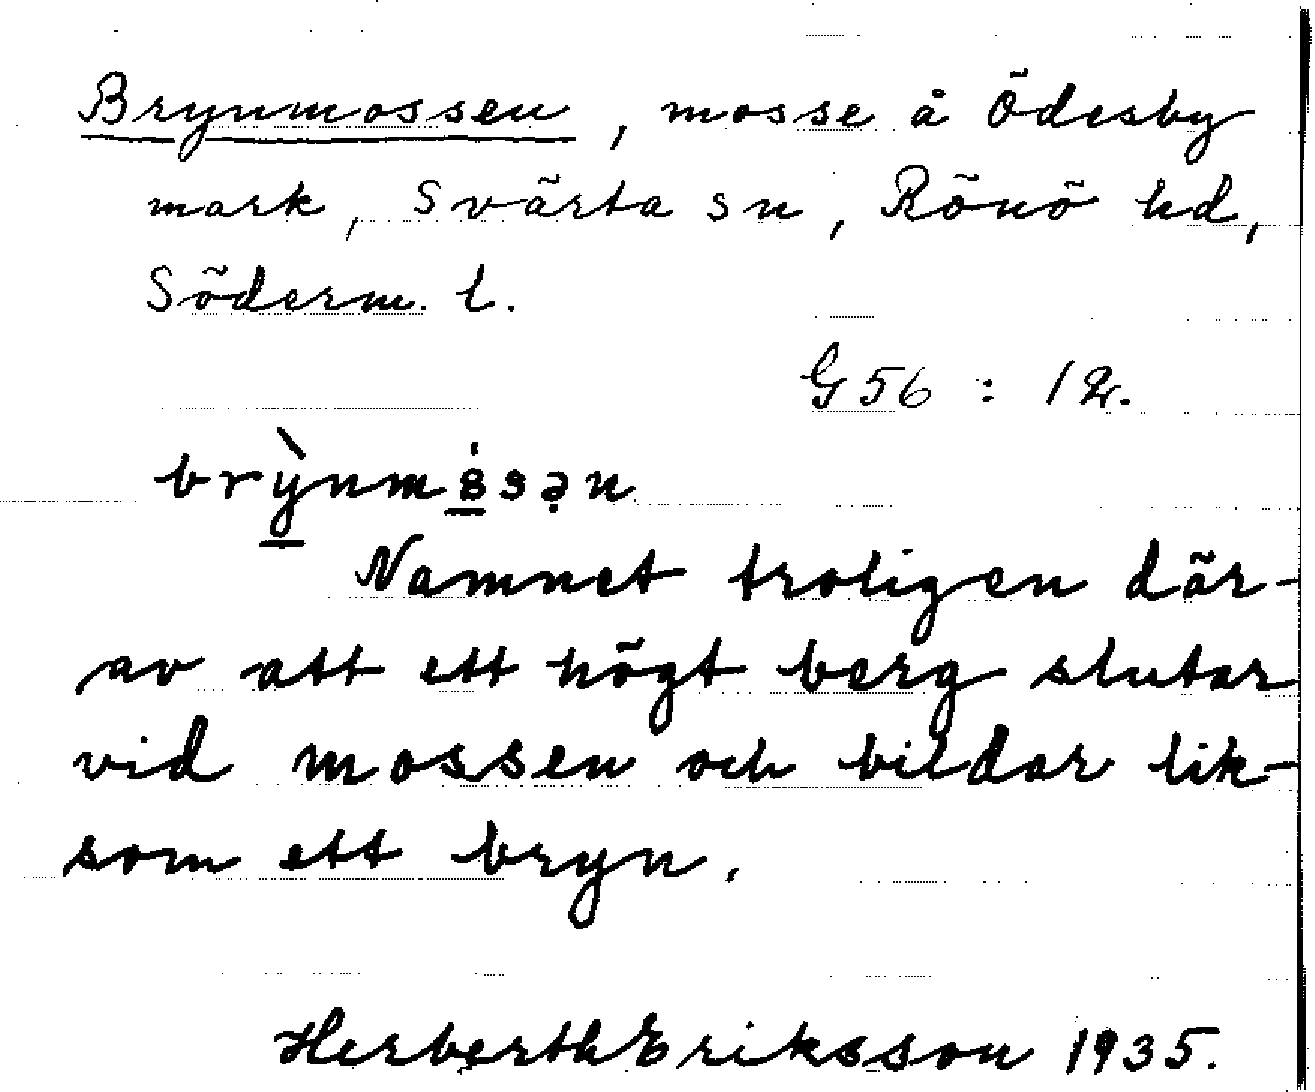 Brynmossen, mosse å Ödesby
mark, Svärta sn, Rönö hd,
Söderm. l.
G56 : 12.
Namnet troligen där-
av att ett högt berg slutar
vid mossen och bildar lik-
som ett bryn.
Herberth Eriksson 1935.